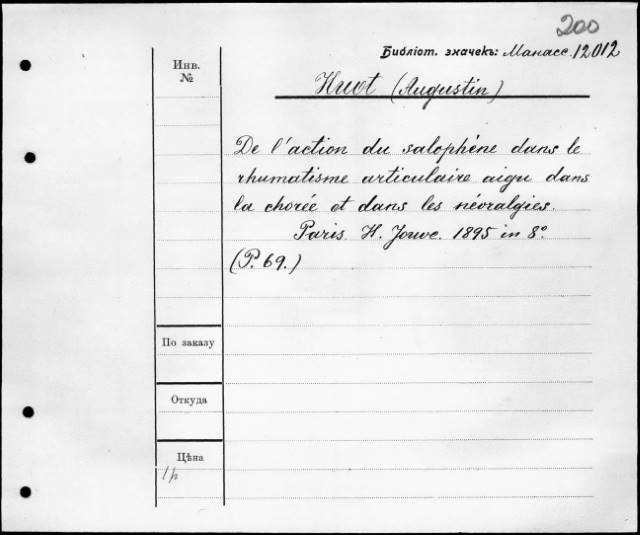 200
Библіот. значекъ: Манасс. 12012
Инв.
№
Huot (Augustin)
De l'action du salophène dans le
rhumatisme articulaire aigu dans
la chorée et dans les névralgies.
Paris. H. Jouve. 1895 in 8°
(P. 69.)
По заказу
Откуда
Цѣна
1р